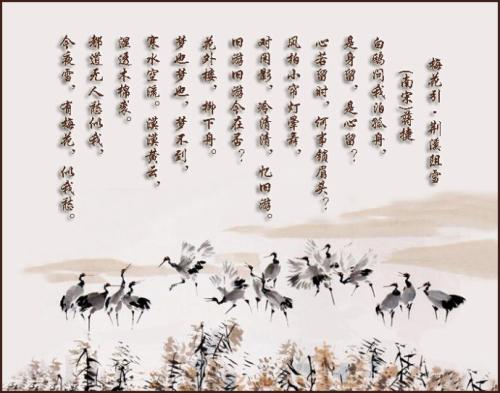 梅花引·荆溪阻雪
(南宋)蒋捷
白鸥问我泊孤舟,
是身留,是心留?
心若留时,何事锁眉头?
风拍小帘灯晕舞,
对闲影,冷清清,忆旧游。
旧游旧游今在否?
花外楼,柳下舟。
梦也梦也,梦不到,
寒水空流。漠漠黄云,
湿透木棉裘。
都道无人愁似我,
今夜雪,有梅花,似我愁。